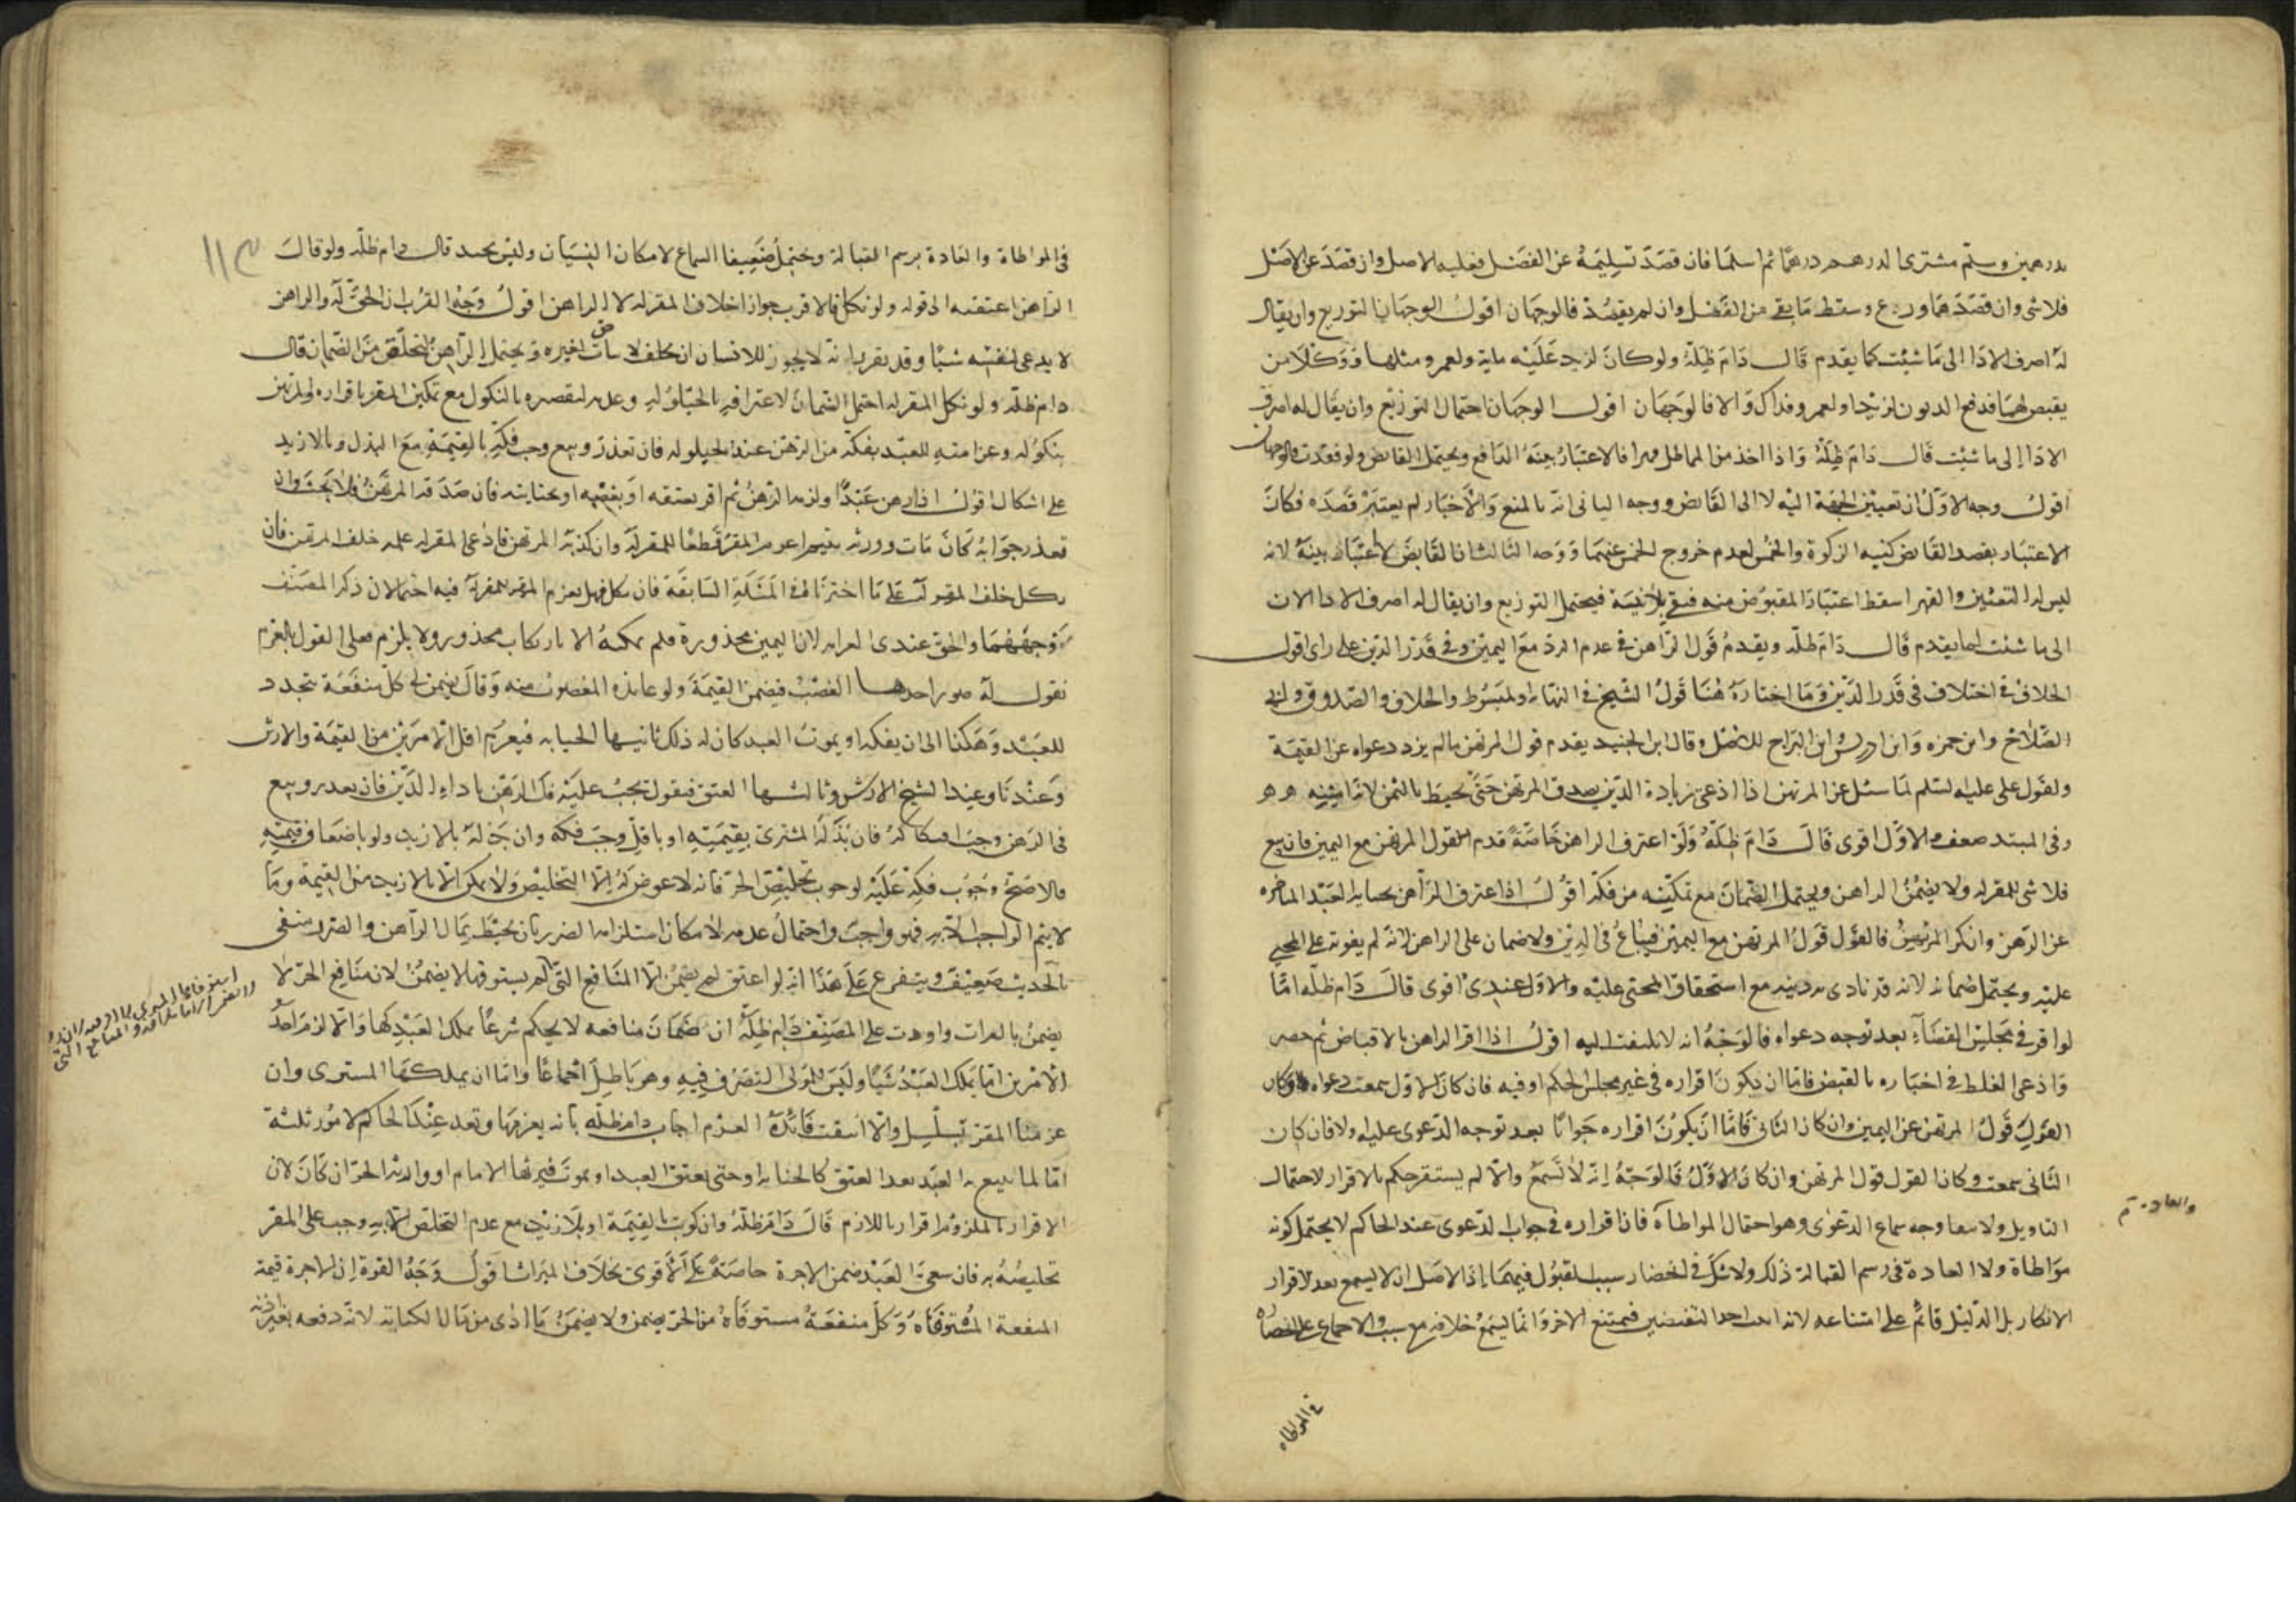 بدرهمين وسلم مشترى الدرهم درهما ثم اسلما فان قصد تسليمه عن الفضل فعليه الاصل وان قصد عن الاصل
فلاشى وان قصدهما وزع وسقط ما بقى من الفضل وان لم يقصد فالوجهان اقول الوجهان التوزيع وان يقال
له اصرف الادا الى ما شئت كما يقدم قال دام ظله ولو كان لزيد عليه ماية ولعمرو مثلها ووكلا من
يقبض لهما فدفع المديون لزيد او لعمرو فذاك والا فالوجهان اقول الوجهان احتمال التوزيع وان يقال له اصرف
الادا الى ما شئت قال دام ظله واذا اخذ من المماطل قهرا فالاعتبار بنية الدافع ويحتمل القابض ولو فقدت فالوجهان
اقول وجه الاول ان تعيين الجهة اليه لا الى القابض ووجه الثانى انه بالمنع والاخبار لم يعتبر قصده فكان
الاعتبار بقصد القابض كنيه الزكوة والخمس لعدم خروج الخمس عنهما ووجه الثالث ان القابض لا اعتبار بنيته لانه
ليس له التعيين والقهر اسقط اعتبار المقبوض منه فبقى بلا نية فيحتمل التوزيع وان يقال له اصرف الادا الان
الى ما شئت لما يقدم قال دام ظله ويقدم قول الراهن فى عدم الرد مع اليمين وفى قدر الدين على راى اقول
الخلاف فى اختلاف فى قدر الدين وما اختاره هنا قول الشيخ فى النهاية والمبسوط والخلاف والصدوق وابى
الصلاح وابن حمزه وابن ادريس وابن البراج للاصل وقال ابن الجنيد يقدم قول المرتهن ما لم يزد دعواه عن القيمة
ولقول على عليه السلم لما سئل عن المرتهن اذا ادعى زيادة الدين يصدق المرتهن حتى يحيط بالثمن لانه امينه
وفى السند ضعف والاول اقوى قال دام ظله ولو اعترف الراهن خاصة قدم القول المرتهن مع اليمين فان بيع
فلاشى للمقر له ولا يضمن الراهن ويحتمل الضمان مع تمكينه من فكه اقول اذا اعترف الراهن بجناية العبد
عن الرهن وانكر المرتهن فالقول قول المرتهن مع اليمين فيباع فى الدين ولا ضمان على الراهن لانه لم يفوته على المجنى
عليه ويحتمل ضمانه لانه قد تادى به دينه مع استحقاق المجنى عليه والاول عندى اقوى قال دام ظله اما
لو اقر فى مجلس القضاء بعد توجه دعواه فالوجه انه لا يلتفت اليه اقول اذا اقر الراهن بالاقباض ثم حضر
وادعى الغلط فى اخباره بالقبض فاما ان يكون اقراره فى غير مجلس الحكم او فيه فان كان الاول سمعت دعواه وكان
القول قول المرتهن عن اليمين وان كان الثانى فاما ان يكون اقراره جوابا بعد توجه الدعوى عليه او لا فان كان
الثانى سمعت وكان القول قول المرتهن وان كان الاول فالوجه انه لا تسمع والا لم يستقر حكم بالاقرار لاحتمال
التاويل ولا وجه سماع الدعوى وهو احتمال المواطاة فان اقراره فى جواب الدعوى عند الحاكم لا يحتمل كونه
مواطاة ولا العادة فى رسم القبالة ذلك ولا شك فى انحصار سبب القبول فيهما اذ الاصل ان لا يسمع بعد الاقرار
الانكار بل الدليل قائم على امتناعه لانه احد النقيضين فيمتنع الاخر وانما يسمع خلافه مع سبب والاجماع على انحصاره
والعادة
فى المواطاه
فى المواطاة والعادة برسم القبالة ويحتمل ضعيفا السماع لامكان النسيان وليس بجيد قال دام ظله ولو قال
الراهن اعتقته الى قوله ولو نكل فالاقرب جواز احلاف المقر له لا الراهن اقول وجه القرب ان الحق له والراهن
لا يدعى لنفسه شيئا وقد تقرر انه لا يجوز للانسان ان يحلف لاثبات حق لغيره ويحتمل الراهن لتخلصه من الضمان قال
دام ظله ولو نكل المقر له احتمل الضمان لاعترافه بالحيلولة وعدمه لتقصيره بالنكول مع تمكين المقر باقراره
بنكوله وعزامته للعبد بفكه من الرهن عند الحيلوله فان تعذر وبيع وجب فكه بالقيمة مع البذل وبالازيد
على اشكال اقول اذا رهن عبدا ولزم الرهن ثم اقر بعتقه او بغصبه او بجنايته فان صدقه المرتهن فلا بحث وان
تعذر جوابه كان مات وورثه يتيم المقر قطعا للمقر له وان كذبه المرتهن فادعى المقر له علمه حلف المرتهن فان
نكل حلف المقر له على ما اخترناه فى المسئلة السابقة فان نكل فهل يغرم المقر للمقر له فيه احتمالان ذكر المصنف
وجههما والحق عندى الغرامه لان اليمين محذورة فلم يمكنه الا بارتكاب محذور ولا يلزم فعلى القول بالغرم
نقول له صور احدها الغصب فيضمن القيمة ولو عاند المغصوب منه وقال يضمن لى كل منفعة تتجدد
للعبد وهكذا الى ان يفكه او يموت العبد كان له ذلك ثانيها الجنايه فيغرم اقل الامرين من القيمة والارش
وعندنا وعند الشيخ الارش وثالثها العتق فنقول يجب عليه فك الرهن باداء الدين فان تعذر وبيع
فى الرهن وجب افتكاكه فان بذله المشترى بقيمته او باقل وجب فكه وان بذله بالازيد ولو باضعاف قيمته
فالاصح وجوب فكه عليه لوجوب تخليص الحر فانه لا عوض له الا التخليص ولا يمكن الا بالازيد من القيمة وما
لا يتم الواجب الا به فهو واجب واحتمال عدمه لامكان استلزامه الضرر بان يحيط بمال الراهن والضرر منفى
بالحديث ضعيف ويتفرع على هذا انه لو اعتق لم يضمن الا المنافع التى لم يستوفها لا يضمن لان منافع الحر لا
يضمن بالفوات واوردت على المصنف دام ظله ان ضمان منافعه لا يحكم شرعا بملك العبد كها والا لزم احد
الامرين اما يملك العبد شيئا وليس للمولى التصرف فيه وهو باطل اجماعا واما ان يملكها المشترى وان
عزمنا المقر تسلسل والا انتفت فائدة الغرم اجاب دام ظله بانه يغرمها وتعد عند الحاكم لامور ثلثة
اما لما يبيع به العبد بعد العتق كالجنايه او حتى يعتق العبد او يموت فيرثها الامام او وارثه الحر ان كان لان
الاقرار بالملزوم اقرار باللازم قال دام ظله وان كوتب بالقيمة او بلا زيد مع عدم التخلص الا به وجب على المقر
تخليصه به فان سعى العبد ضمن الاجرة خاصة على الاقوى بخلاف الميراث اقول وجه القوة ان الاجرة قيمة
المنفعة المستوفاه وكل منفعة مستوفاه من الحر يضمن ولا يضمن ما ادى من مال الكتابته لانه دفعه بغير اذنه